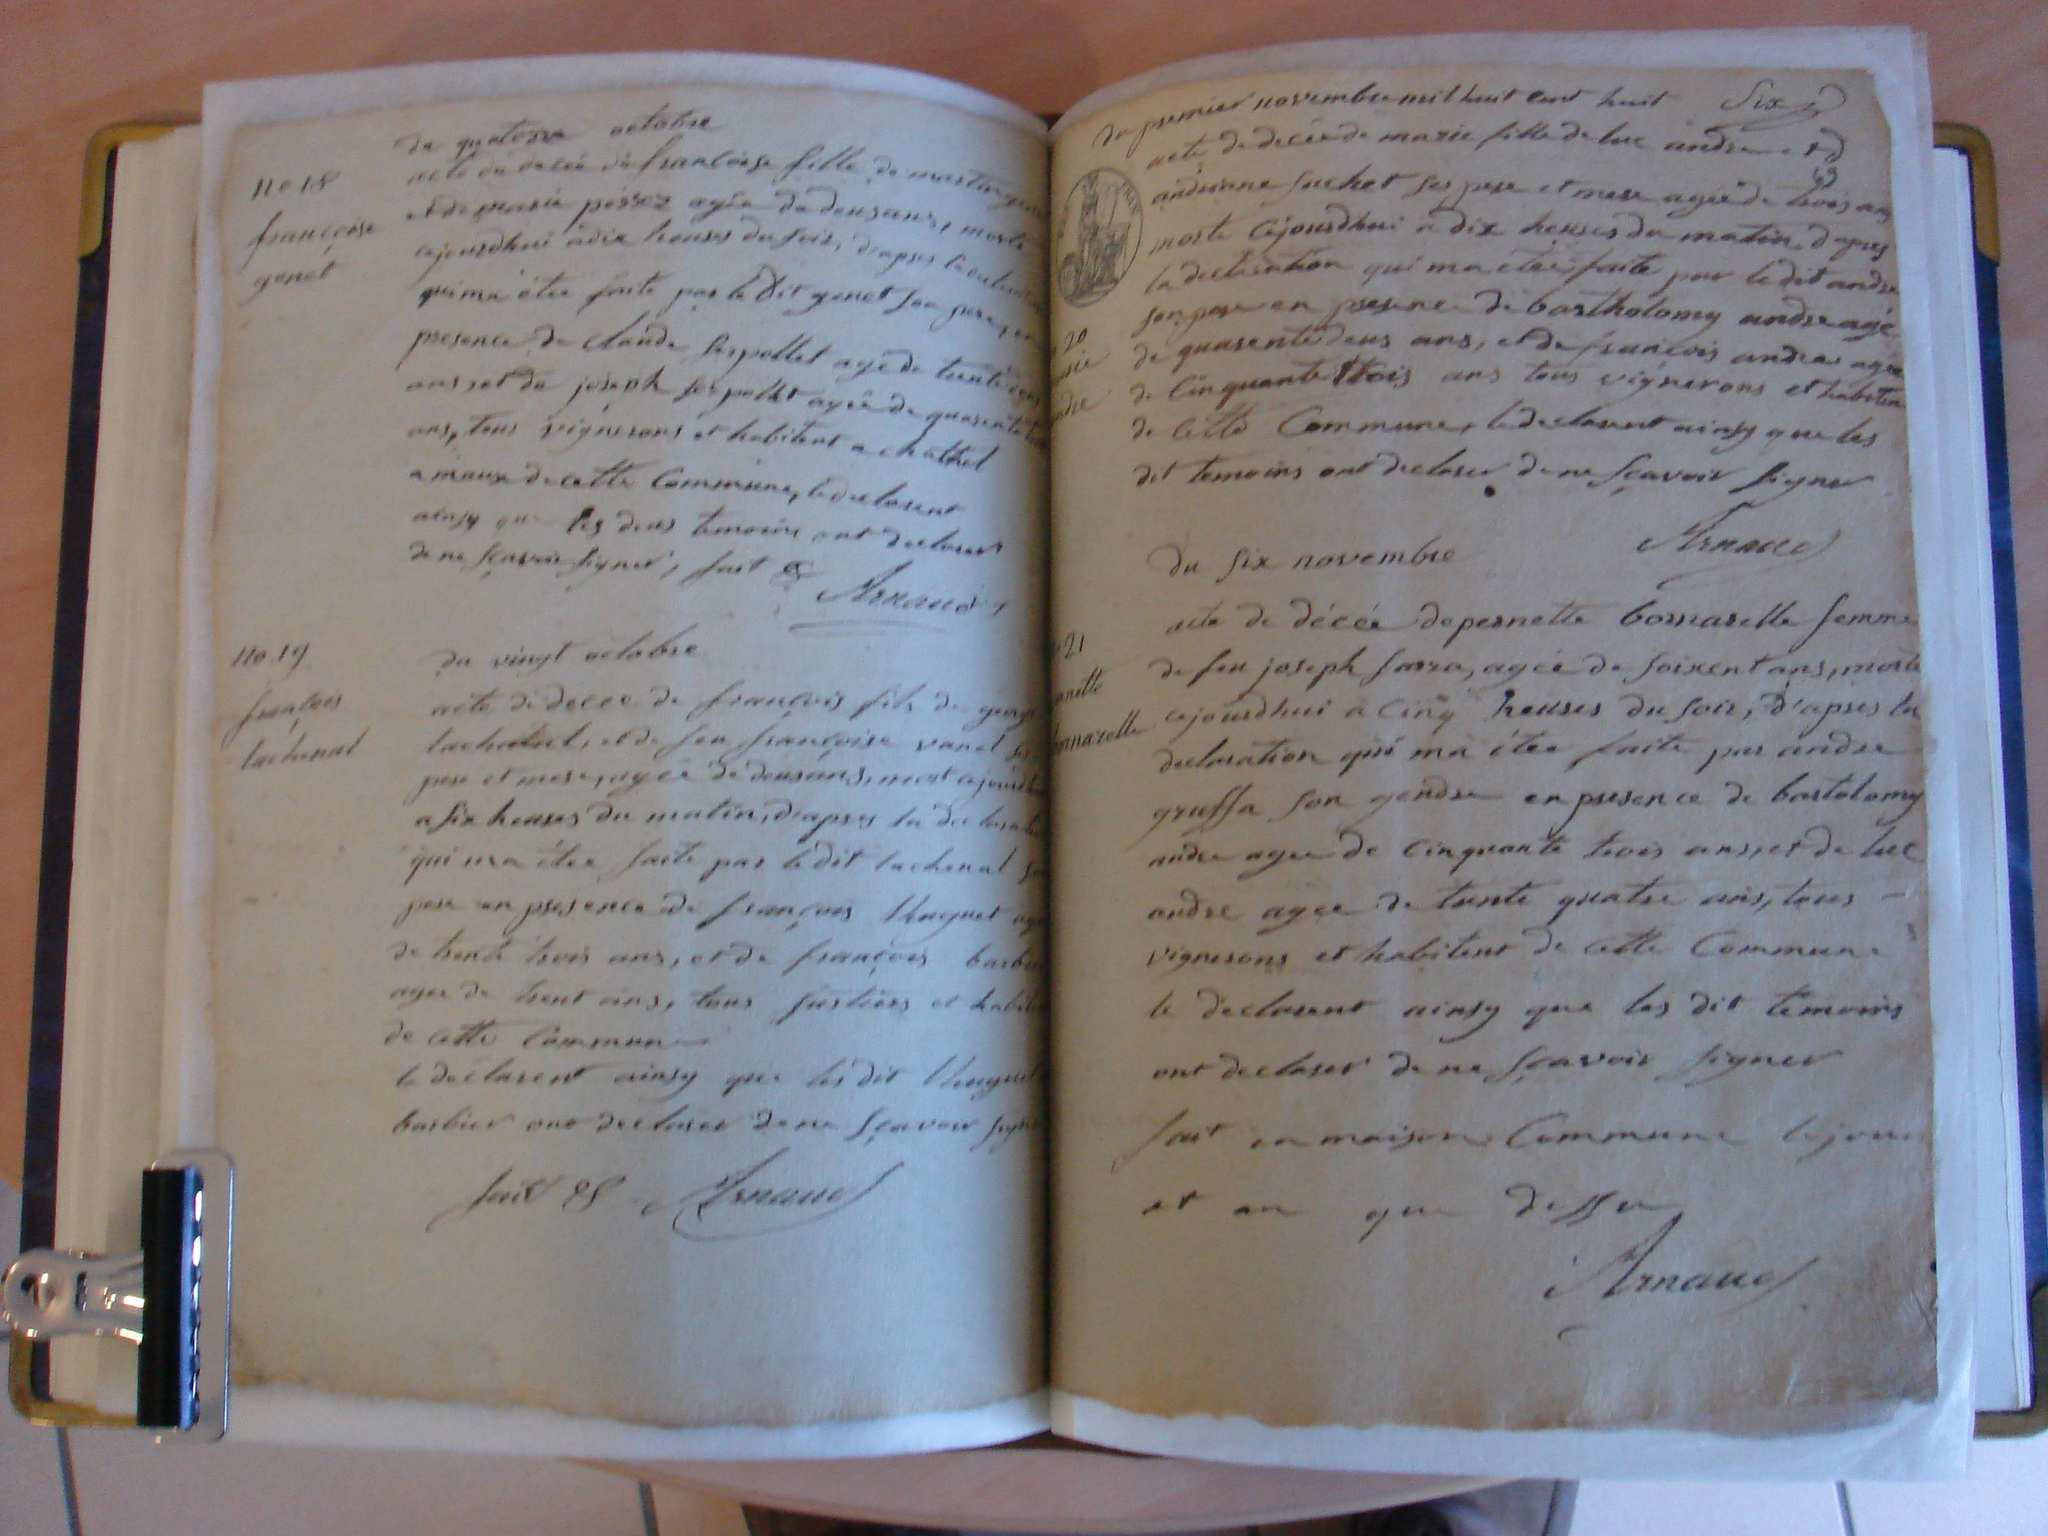 du quatorze octobre
no 18
acte de décée de françoise fille de martin genet
françoise
et de marie perrez agée de deux ans, morte
genet
cejourdhui a dix heures du soir, d'apres la declaration
qui ma étee faite par le dit genet son pere, en
presence de claude serpollet agé de trente
ans, et de joseph serpollet agée de quarente
ans, tous vignerons et habitent a chattel
de cette Commune, le declarent
ainsy que les deux temoins ont declarer
de ne sçavoir signer, fait &
Arnaud
no 19
du vingt octobre
françois
acte de decee de françois fils de george
lachenal
lachenal, et de feu françoise vanel ses
pere et mere, agée de deux ans, mort cejourdhui
a six heures du matin, d'apres la declaration
qui ma étee faite par le dit lachenal son
pere en presence de françois Huguet agé
de trente trois ans, et de françois barbier
agee de trent ans, tous justiers et habitent
de cette Commune
le declarent ainsy que les dit Huguet
barbier ont declarer de ne sçavoir signer
fait &
Arnaud
du premier novembre mil huit cent huit Six
acte de decée de marie fille de luc andre et d
andrienne suchet ses pere et mere agée de trois ans
morte cejourdhui a dix heures du matin, d'apres
la declaration qui ma étée faite par le dit andre
son pere en presence de bartholomy andre agé
20
de quarente deux ans, et de françois andre agée
de Cinquante trois ans tous vignerons et habitent
andre
de cette Commune, le declarent ainsy que les
dit temoins ont declarer de ne sçavoir signer
Arnaud
du six novembre
acte de décée de pernette bornarelle femme
21
de feu joseph sarra, agée de soixent ans, morte
cejourdhui a cinq heures du soir, d'apres la
declaration qui ma étee faite par andre
gruffa son gendre en presence de bartolomy
andre agee de cinquante trois ans, et de luc
andre agee de trente quatre ans, tous
vignerons et habitent de cette Commune
le declarent ainsy que les dit temoins
ont declarer de ne sçavoir signer
fait en maison Commune le jour
et an que dessu
Arnaud